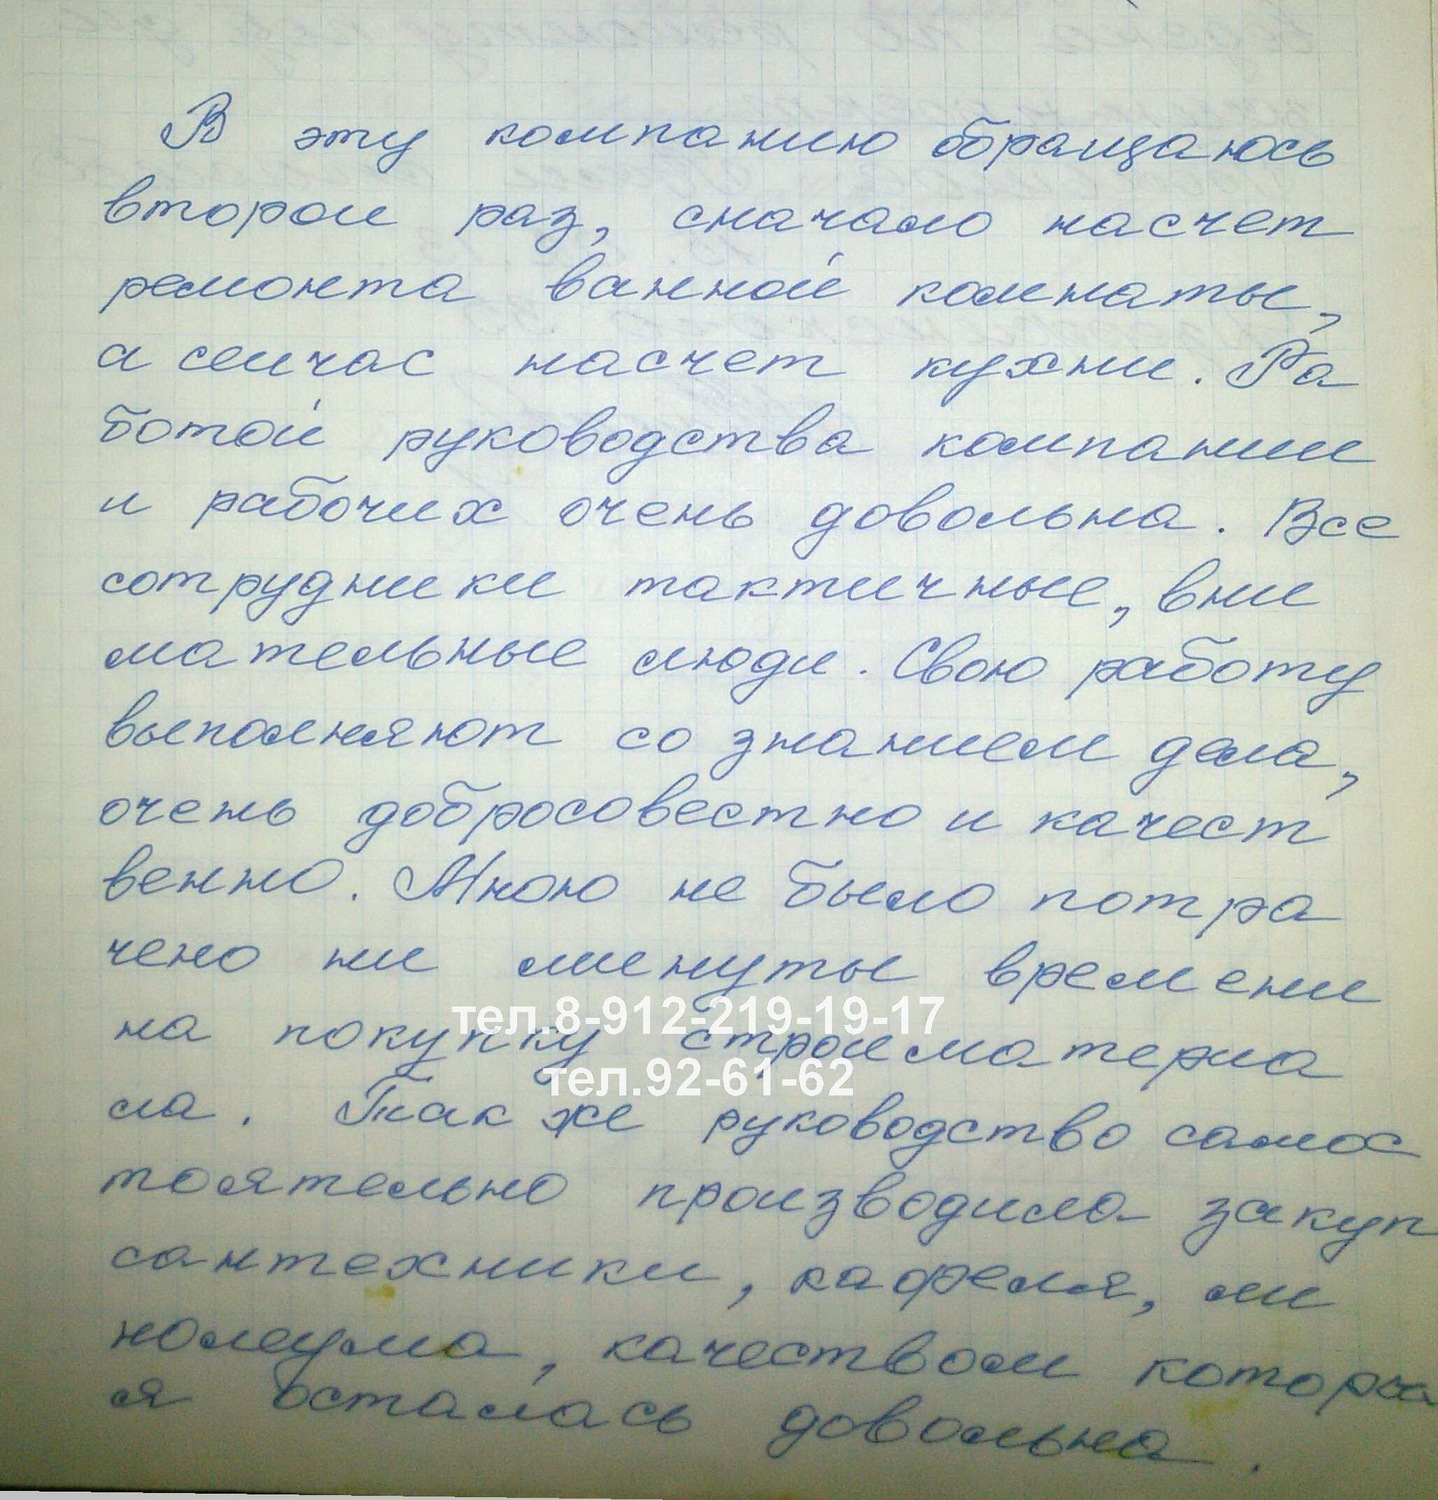 В эту компанию обращаюсь
второй раз, сначало насчет
ремонта ванной комнаты,
а сейчас насчет кухни. Ра
ботой руководства компании
и рабочих очень довольна. Все
сотрудники тактичные, вни
мательные люди. Свою работу
выполняют со знанием дела,
очень добросовестно и качест
венно. Мною не было потра
чено ни минуты времени
тел.8-912-219-19-17
на покупку стройматериа
тел.92-61-62
ла. Так же руководство самос
тоятельно производило закуп
сантехники, кафеля, ли
нолеума, качеством которых
я осталась довольна.